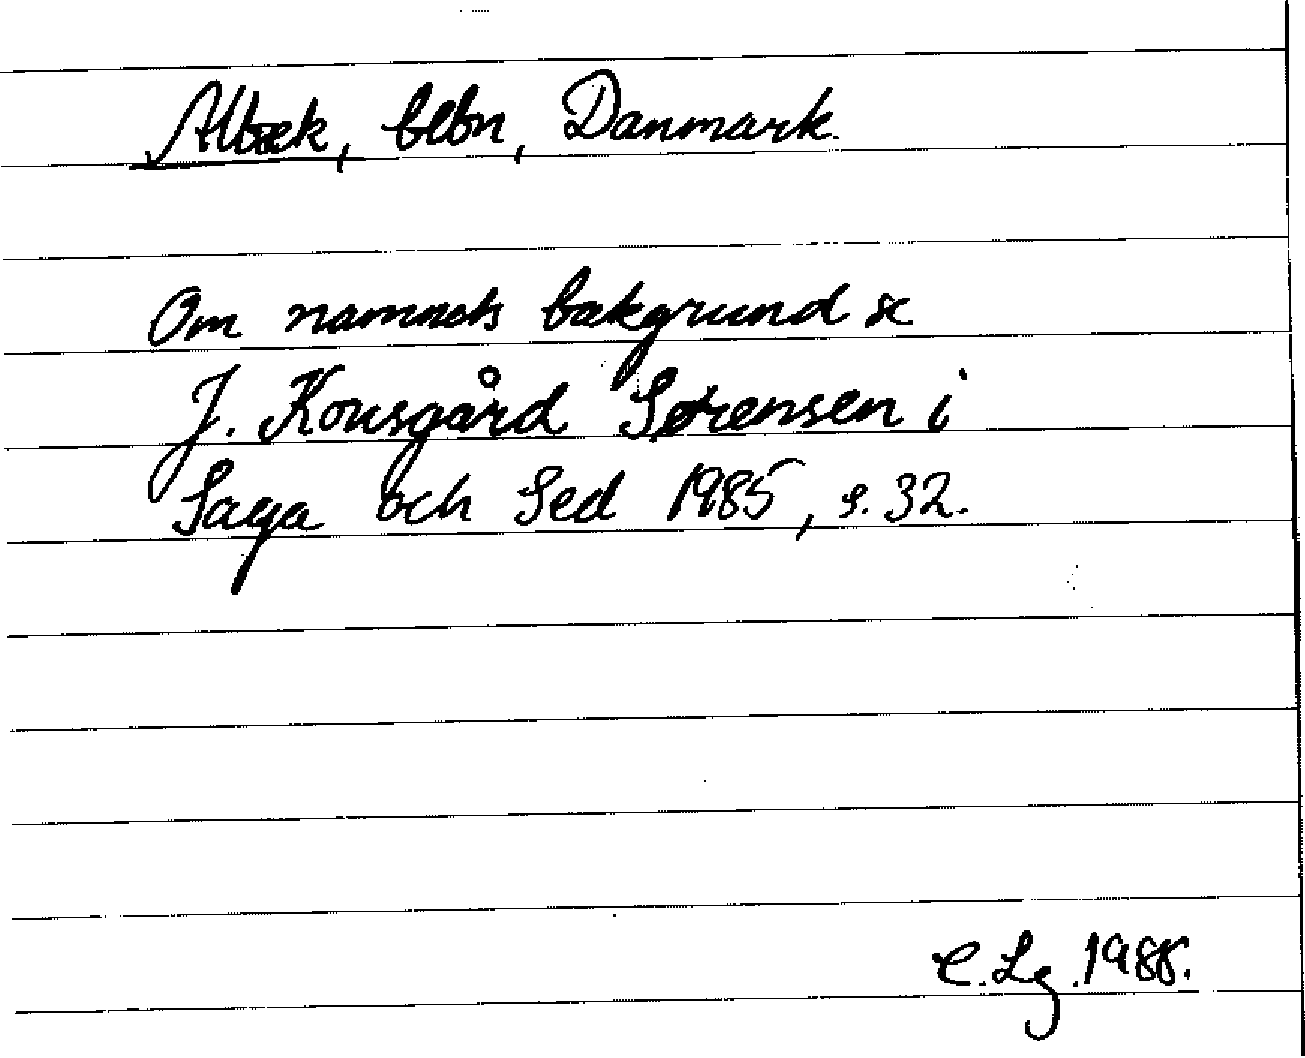 Albæk, bebn, Danmark.
Om namnets bakgrund se
J. Kousgård Sørensen i
Saga och Sed 1985, s. 32.
C. Lg. 1988.